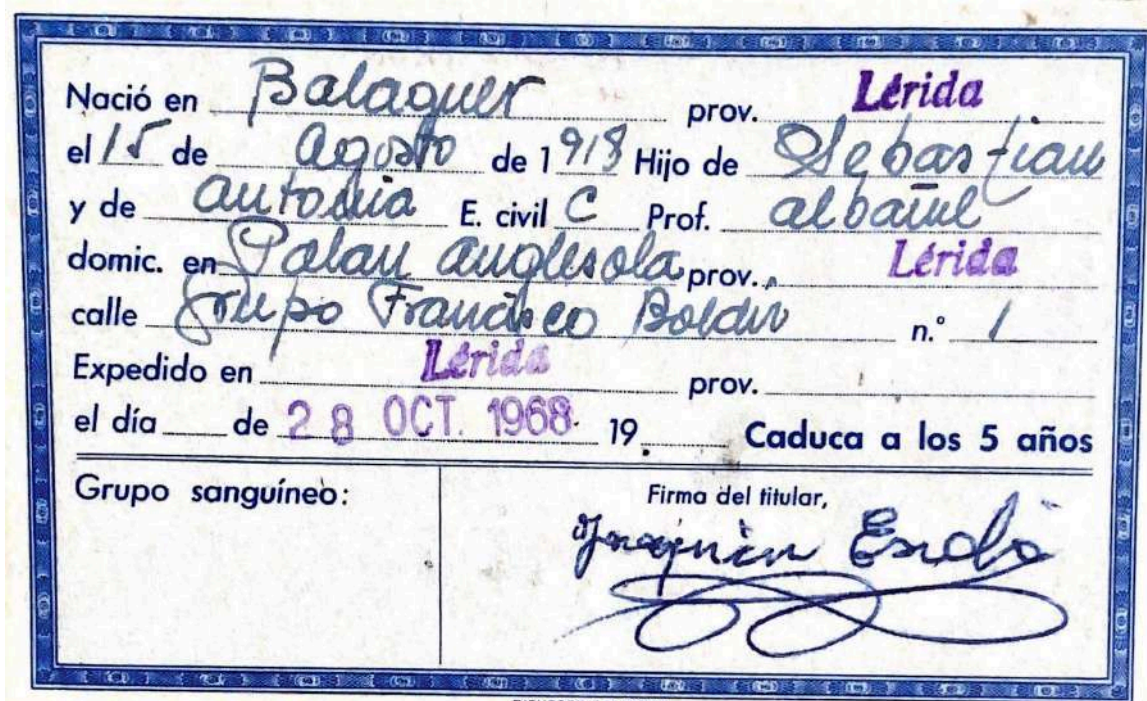 Nació en Balaguer prov. Lérida
el 15 de Agosto de 1918 Hijo de Sebastian
y de Antonia E. civil C Prof. albañil
domic. en Palau Anglesola prov. Lérida
calle Grupo Francisco Boldú n.º 1
Expedido en Lérida prov.
el día de 28 OCT. 1968 19 Caduca a los 5 años
Grupo sanguíneo: Firma del titular,
Joaquin